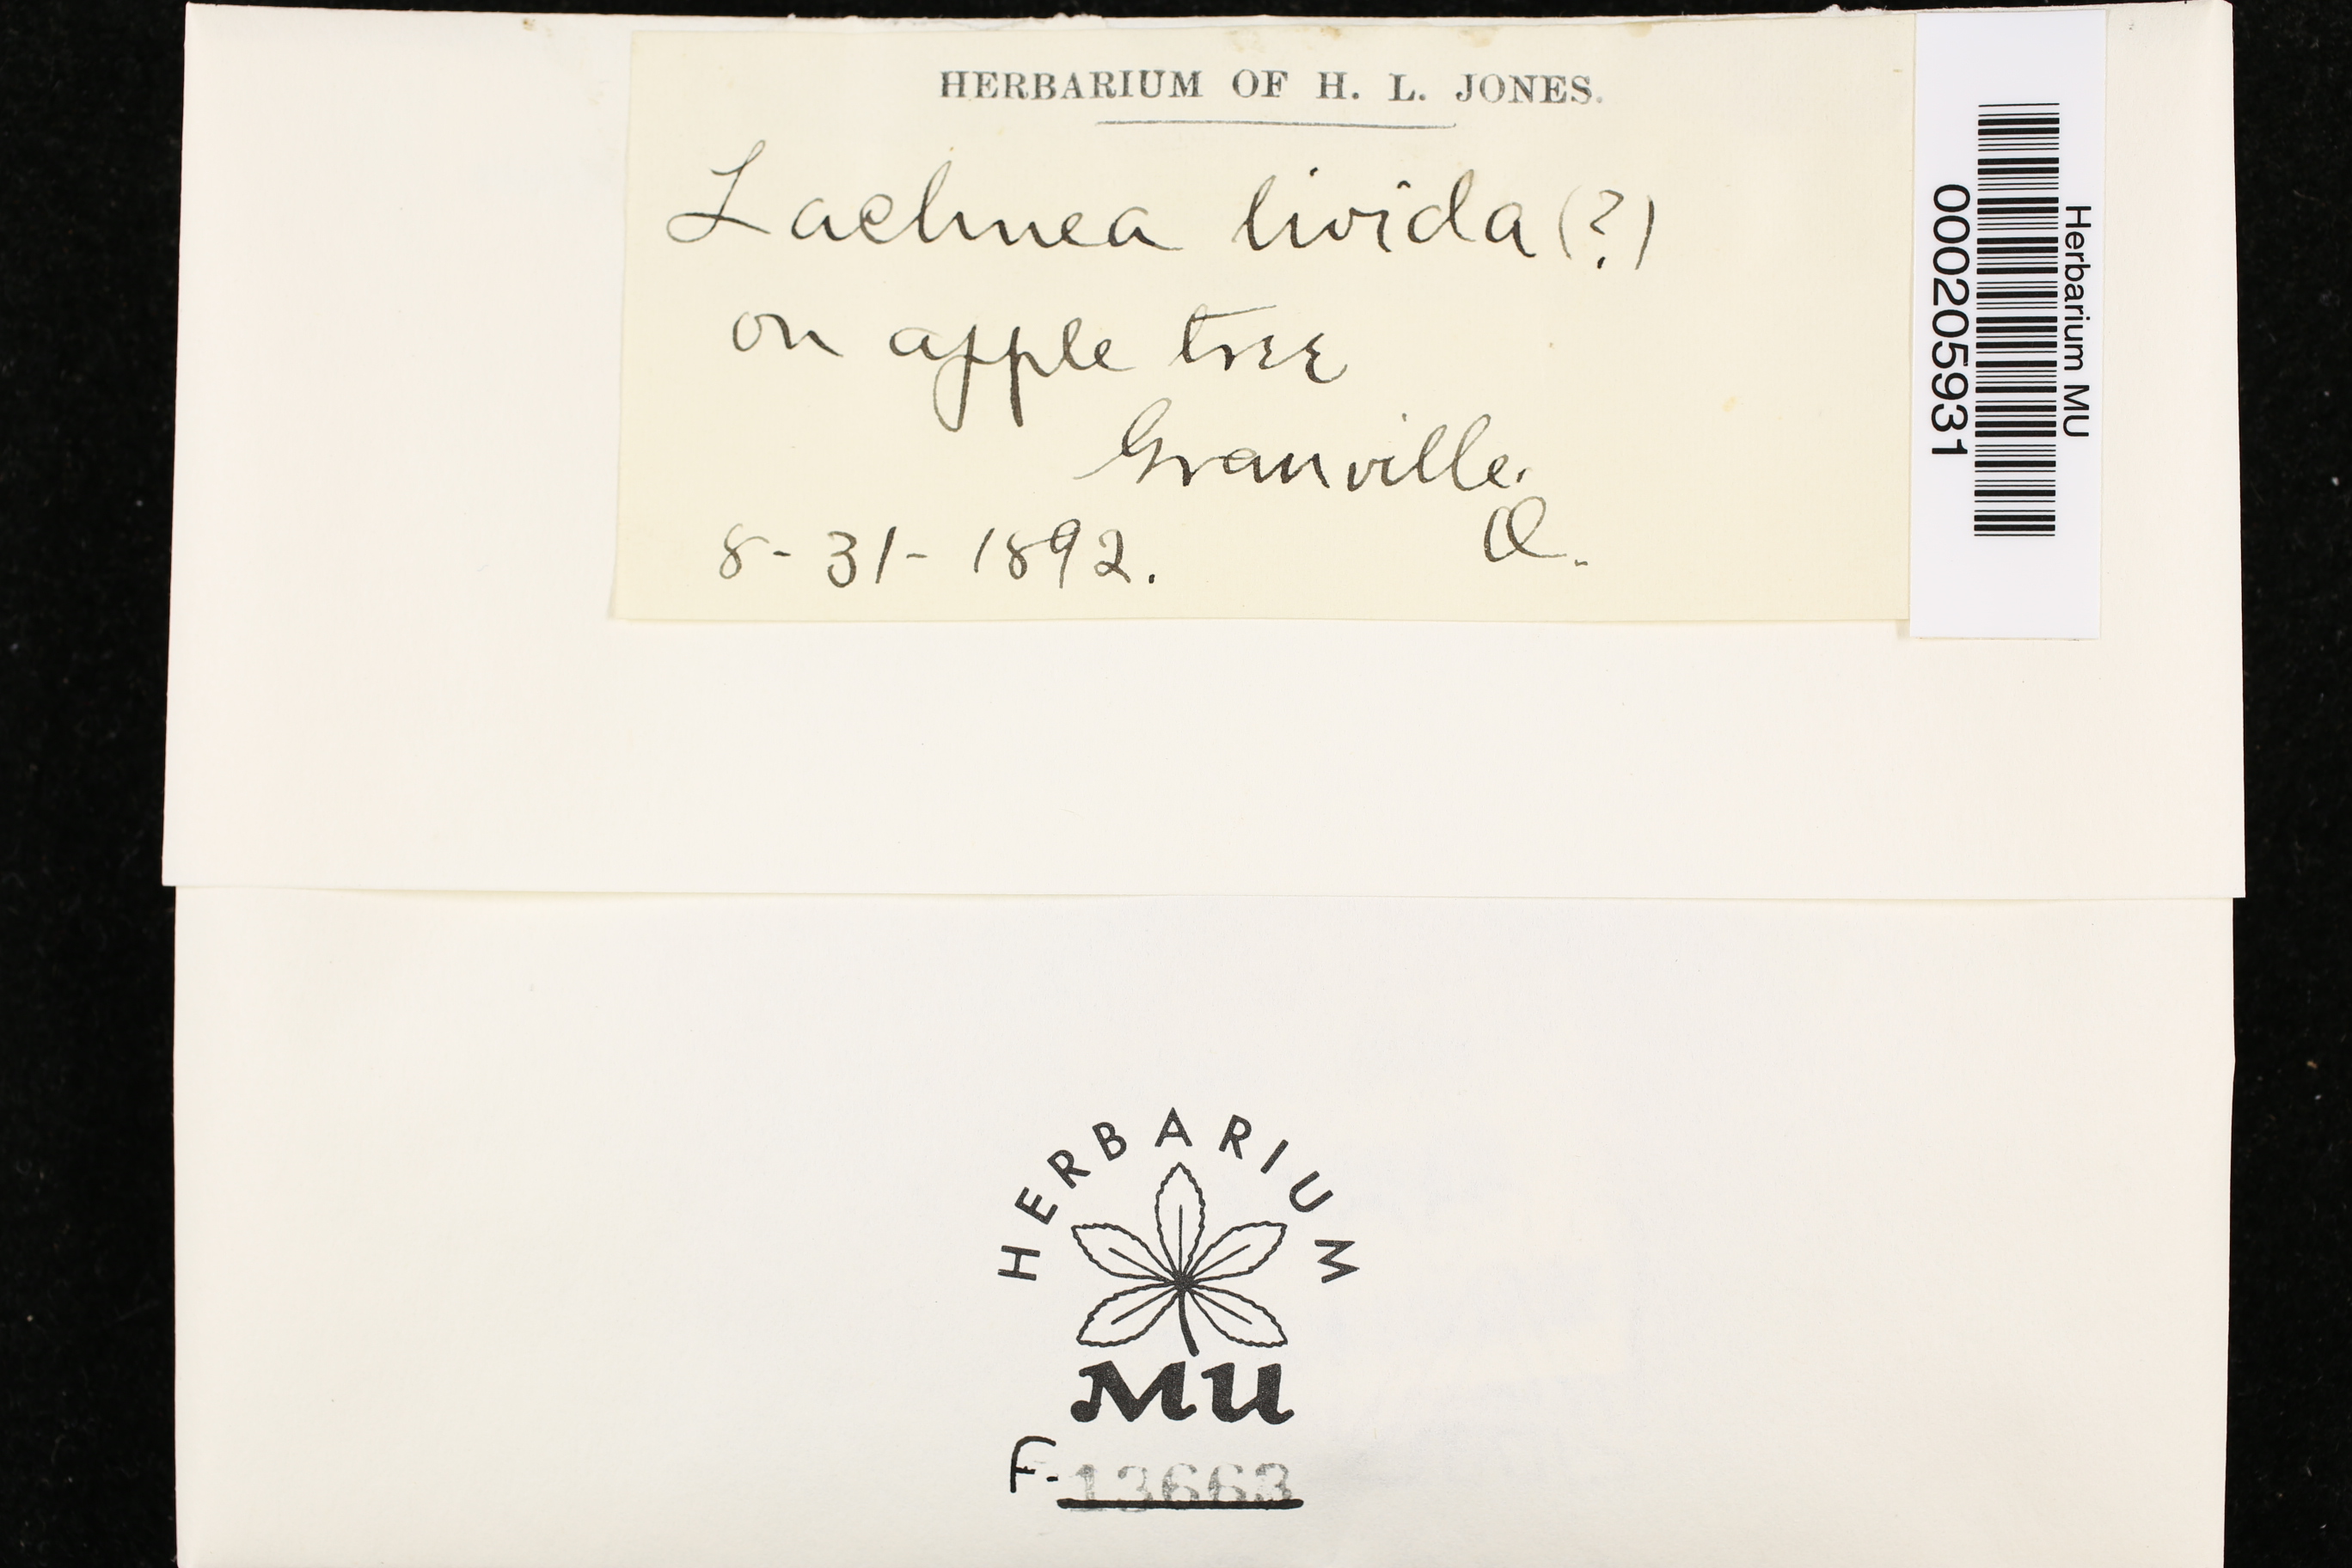 HERBARIUM OF H. L. JONES.
Lachnea livida (?)
on apple tree
Granville.
O.
8-31-1892.
Herbarium MU
000205931
HERBARIUM
MU
F-13663